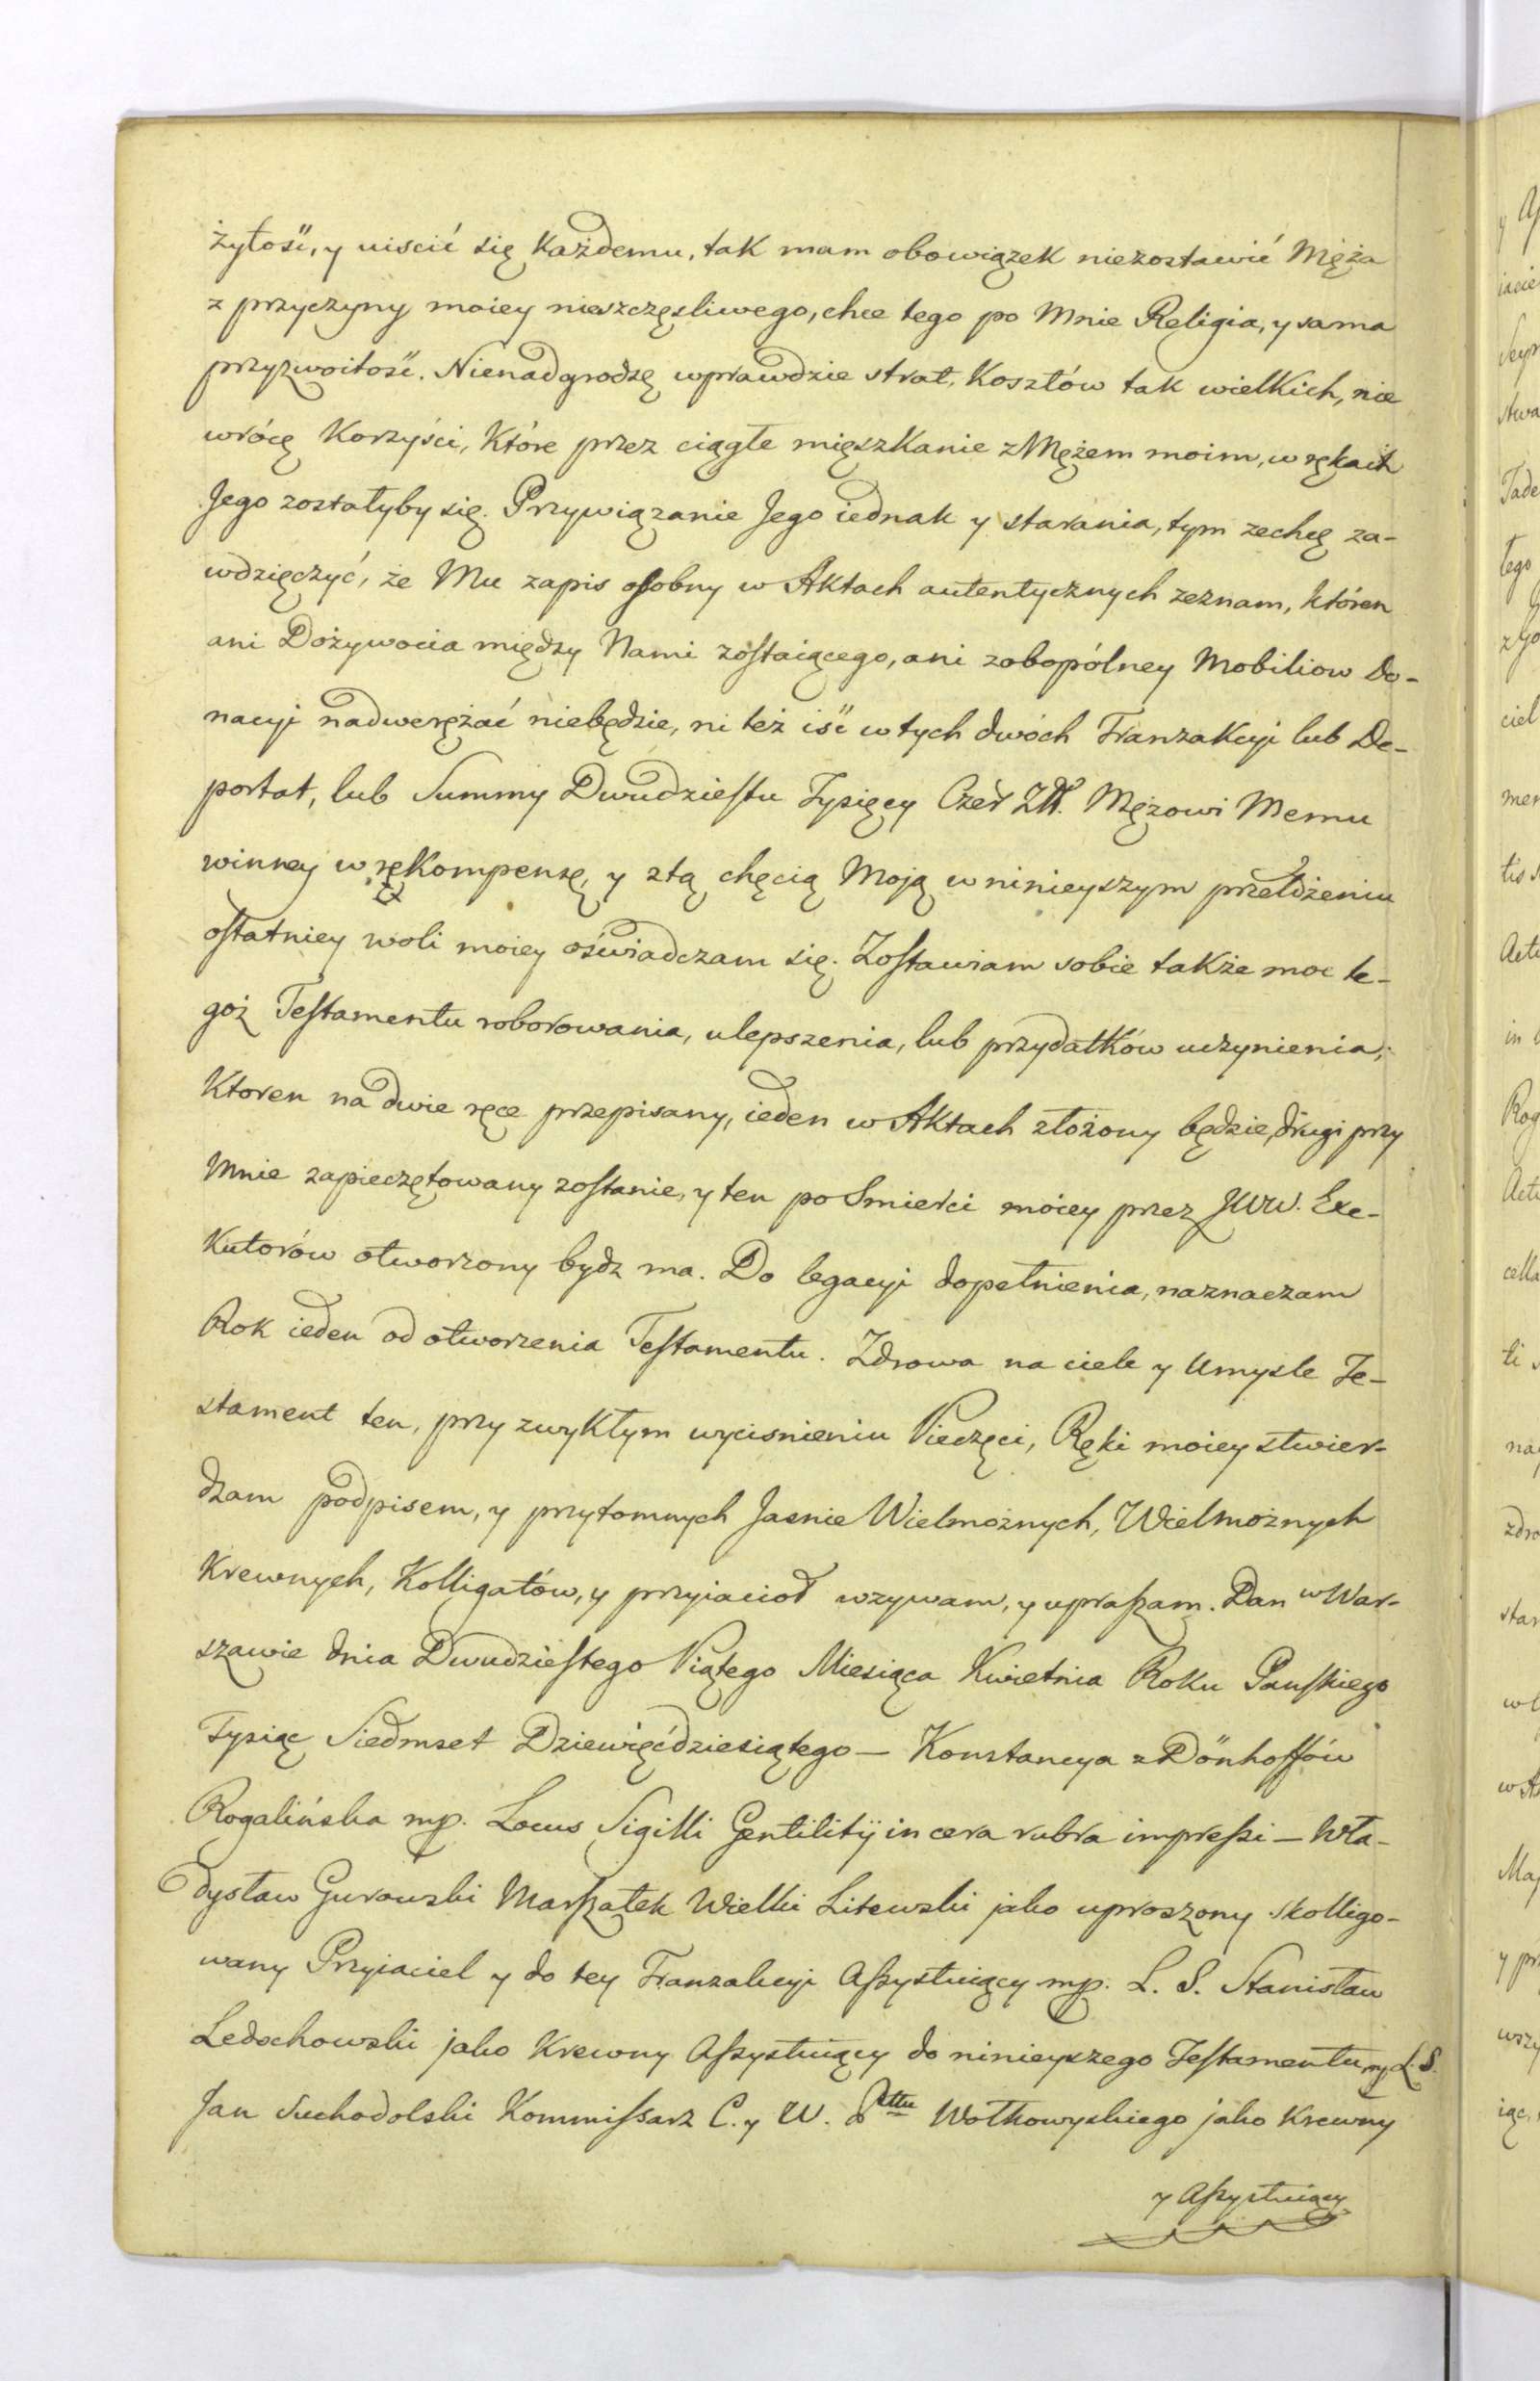 żyłość, y uiscić się Każdemu, tak mam obowiązek niezostawić Męża
z przyczyny moiey nieszczęsliwego, chce tego po Mnie Religia, y sama
przyzwoitość. Nienadgrodzę wprawdzie strat, Kosztów tak wielkich, nie
wrócę Korzyści, Które przez ciągłe mięszkanie z Mężem moim, w rękach
Jego zostałyby się. Przywiązanie Jego iednak y starania, tym zechcę za-
wdzięczyć, że Mu zapis osobny w Aktach autentycznych zeznam, któren
ani Dożywocia między Nami zostaiącego, ani zobopólney Mobiliow Do-
nacyi nadwerężać niebędzie, ni też iść w tych dwóch Tranzakcyi lub De-
portat, lub Summy Dwudziestu Tysięcy Czer Zł. Mężowi Memu
winney w rękompensę, y z tą chęcią Moją w ninieyszym przełożeniu
ostatniey woli moiey oświadczam się. Zostawiam sobie także moc te-
goż Testamentu roborowania, ulepszenia, lub przydatków uczynienia;
Ktoren na dwie ręce przepisany, ieden w Aktach złożony będzie, drugi przy
Mnie zapieczętowany zostanie, y ten po Smierci moiey przez JWW. Exe-
Kutorów otworzony bydz ma. Do legacyi dopełnienia, naznaczam
Rok ieden od otworzenia Testamentu. Zdrowa na ciele y Umysle Te-
stament ten, przy zwykłym wycisnieniu Pieczęci, Ręki moiey stwier-
dzam podpisem, y przytomnych Jasnie Wielmożnych, Wielmożnych
Krewnych, Kolligatów, y przyiacioł wzywam, y upraszam. Dan w War-
szawie dnia Dwudziestego Piątego Miesiąca Kwietnia Roku Panskiego
Tysiąc Siedmset Dziewięćdziesiątego — Konstancya z Dönhoffów
Rogalińska mp. Locus Sigilli Gentilitÿ in cera rubra impressi — Wła-
dysław Gurowski Marszałek Wielki Litewski jako uproszony skolligo-
wany Przyiaciel y do tey Tranzakcyi Assystuiący mp. L. S. Stanisław
Ledochowski jako Krewny Assystuiący do ninieyszego Testamentu mp L. S.
Jan Suchodolski Kommissarz C. y W. Pttu Wołkowyskiego jako Krewny
y Assystuiący